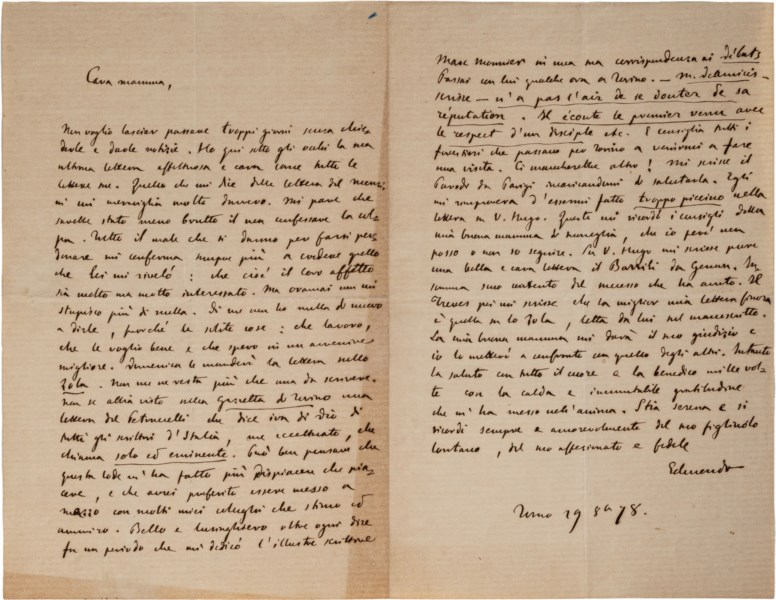 Cara mamma,
Non voglio lasciar passare troppi giorni senza chie-
derle e darle notizie. Ho qui sotto gli occhi la sua
ultima lettera affettuosa e cara come tutte le
lettere sue. Quello che mi dice della lettera del
mi mi meraviglia molto davvero. Mi pare che
sarebbe stato meno brutto il non confessare la col-
pa. Tutto il male che si danno per farsi per-
donare mi conferma sempre più a credere quello
che lei mi rivelò: che cioè il loro affetto
sia molto ma molto interessato. Ma oramai non mi
stupisco più di nulla. Di me non ho nulla di nuovo
a dirle, fuorché le solite cose: che lavoro,
che le voglio bene e che spero in un avvenire
migliore. Domenica le manderò la lettera sullo
Zola. Non me ne resta più che una da scrivere.
Non so se abbia visto nella Gazzetta di Torino una
lettera del Petruccelli che dice ira di Dio di
tutti gli scrittori d'Italia, me eccettuato, che
chiama solo ed eminente. Può ben pensare che
questa lode m'ha fatto più dispiacere che pia-
cere, e che avrei preferito essere messo a
mazzo con molti miei colleghi che stimo ed
ammiro. Bello e lusinghiero oltre ogni dire
fu un periodo che mi dedicò l'illustre scrittore
Marc Monnier in una sua corrispondenza ai débats
Passai con lui qualche ora a Torino. — M. deAmicis —
scrisse — n'a pas l'air de se douter de sa
réputation. Il écoute le premier venu avec
le respect d'un disciple etc. E consiglia tutti i
forestieri che passano per Torino a venirmi a fare
una visita. Ci mancherebbe altro! Mi scrisse il
Parodi da Parigi incaricandomi di salutarla. Egli
mi rimprovera d'essermi fatto troppo piccino nella
lettera su V. Hugo. Questo mi ricorda i consigli della
mia buona mamma di che io però non
posso o non so seguire. Su V. Hugo mi scrisse pure
una bella e cara lettera il Barrili da Genova. In-
somma sono contento del successo che ha avuto. Il
Treves poi mi scrisse che la miglior mia lettera finora
è quella su lo Zola, letta da lui nel manoscritto.
La mia buona mamma mi darà il suo giudizio e
io lo metterò a confronto con quello degli altri. Intanto
la saluto con tutto il cuore e la benedico mille vol-
te con la calda e immutabile gratitudine
che m'ha messo nell'anima. Stia serena e si
ricordi sempre e amorevolmente del suo figliuolo
lontano, del suo affezionato e fedele
Edmondo
Torino 29 8bre 78.